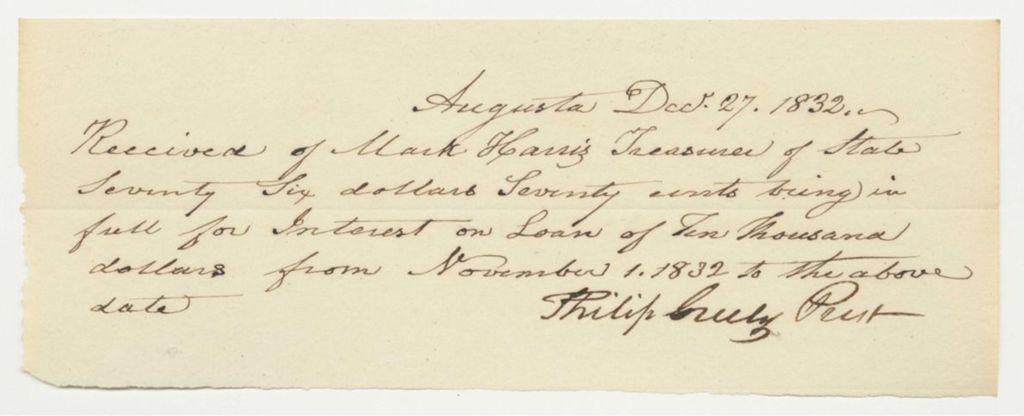 Augusta Decr. 27. 1832.
Received of Mark Harris Treasurer of State
Seventy Six dollars Seventy cents being in
full for Interest on Loan of Ten Thousand
dollars from November 1. 1832 to the above
date Philip Greely Prest